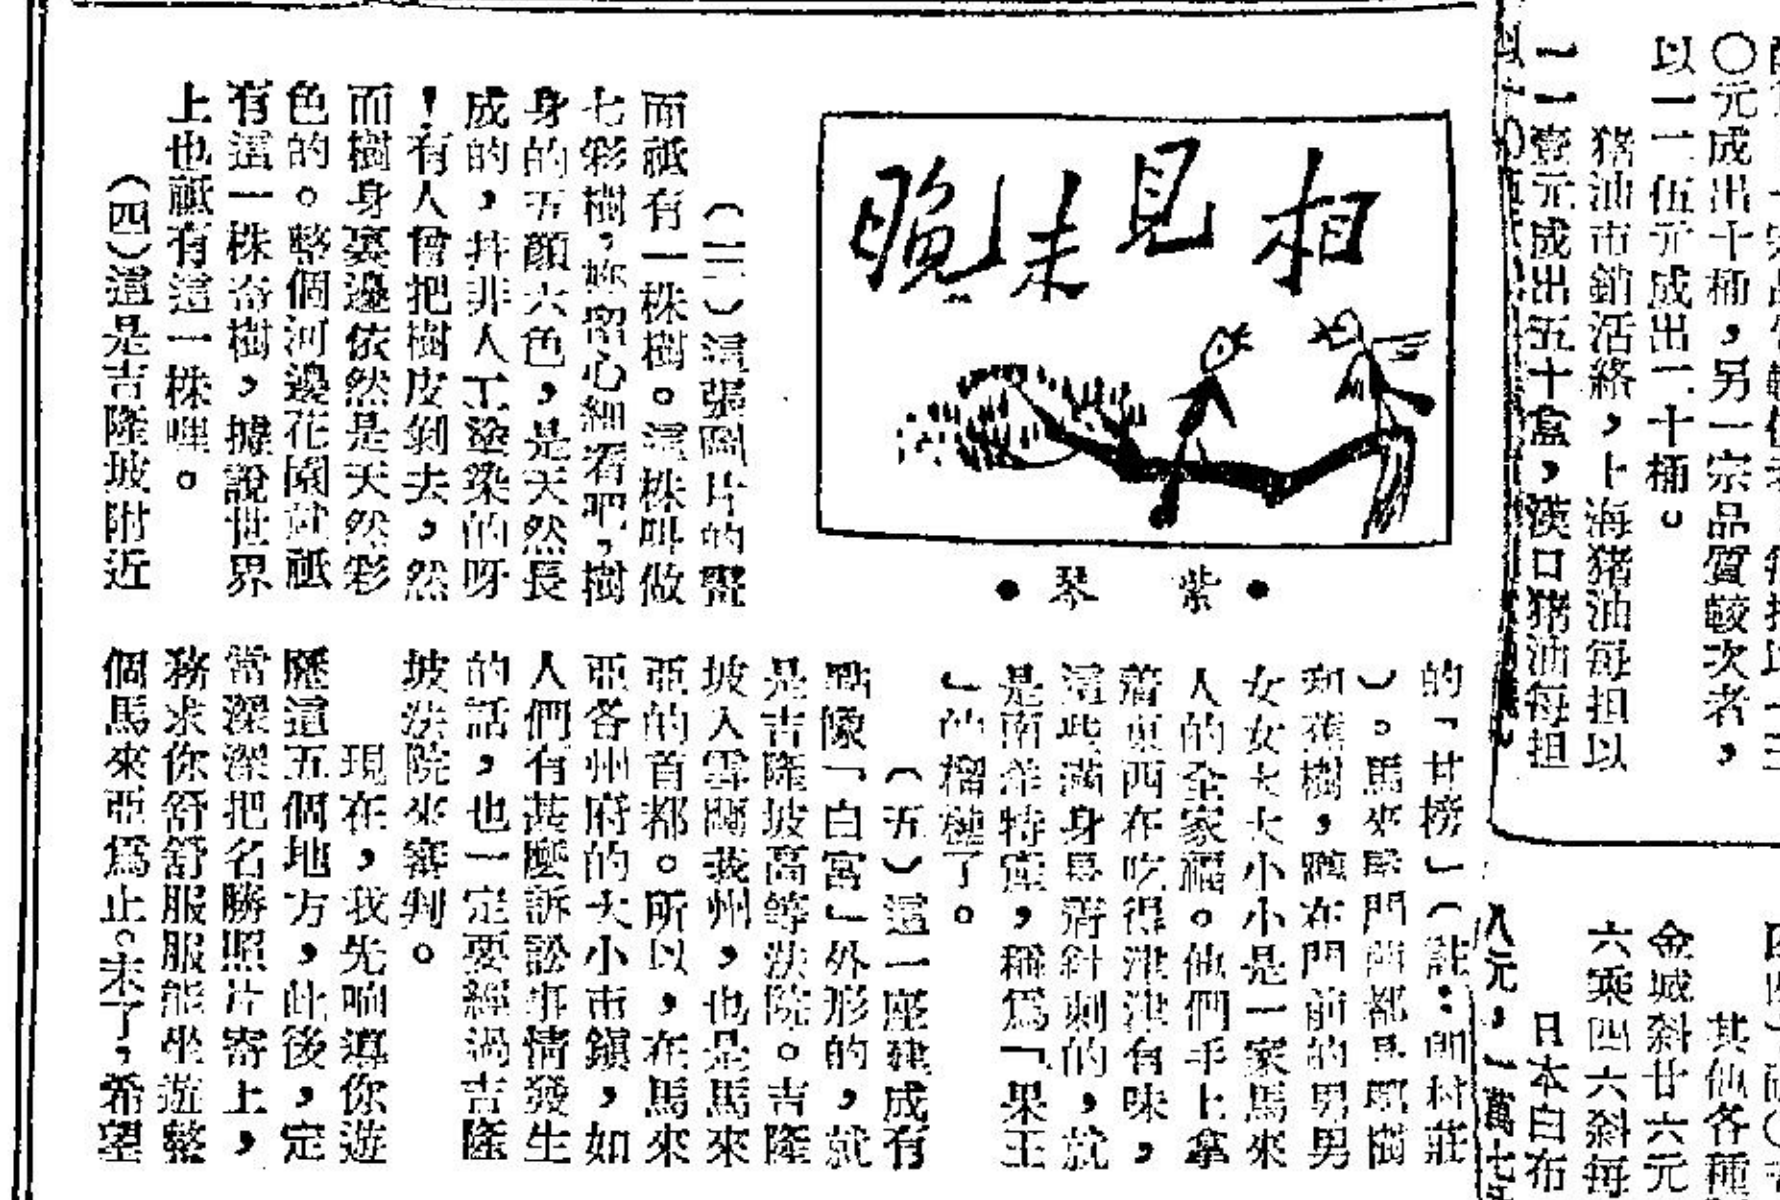 〇元成出十桶，另一宗品質較次者，
以一一伍元成出二十桶。
猪油市銷活絡，上海猪油每担以
一一壹元成出五十盒，漢口猪油每担
其他各種
金城斜廿六元
六乘四六斜每
日本白布
八元，一萬七
相見未晚
●紫琴●
（三）這張圖片的畫
面祗有一株樹。這株叫做
七彩樹，你留心細看吧，樹
身的五顏六色，是天然長
成的，幷非人工塗染的呀
！有人曾把樹皮剝去，然
而樹身裏邊依然是天然彩
色的。整個河邊花園就祗
有這一株奇樹，據說世界
上也祗有這一株哩。
（四）這是吉隆坡附近
的「甘榜」（註：即村莊
）。馬來屋門前都是椰樹
和蕉樹，蹲在門前的男男
女女大大小小是一家馬來
人的全家福。他們手上拿
着東西在吃得津津有味，
這些滿身是滑針刺的，就
是南洋特產，稱爲「果王
」的榴槤了。
（五）這一座建成有
點像「白宮」外形的，就
是吉隆坡高等法院。吉隆
坡入雪蘭莪州，也是馬來
亞的首都。所以，在馬來
亞各州府的大小市鎮，如
人們有甚麼訴訟事情發生
的話，也一定要經過吉隆
坡法院來審判。
現在，我先响導你遊
歷這五個地方，此後，定
當深深把名勝照片寄上，
務求你舒舒服服能坐遊整
個馬來亞爲止。末了，希望